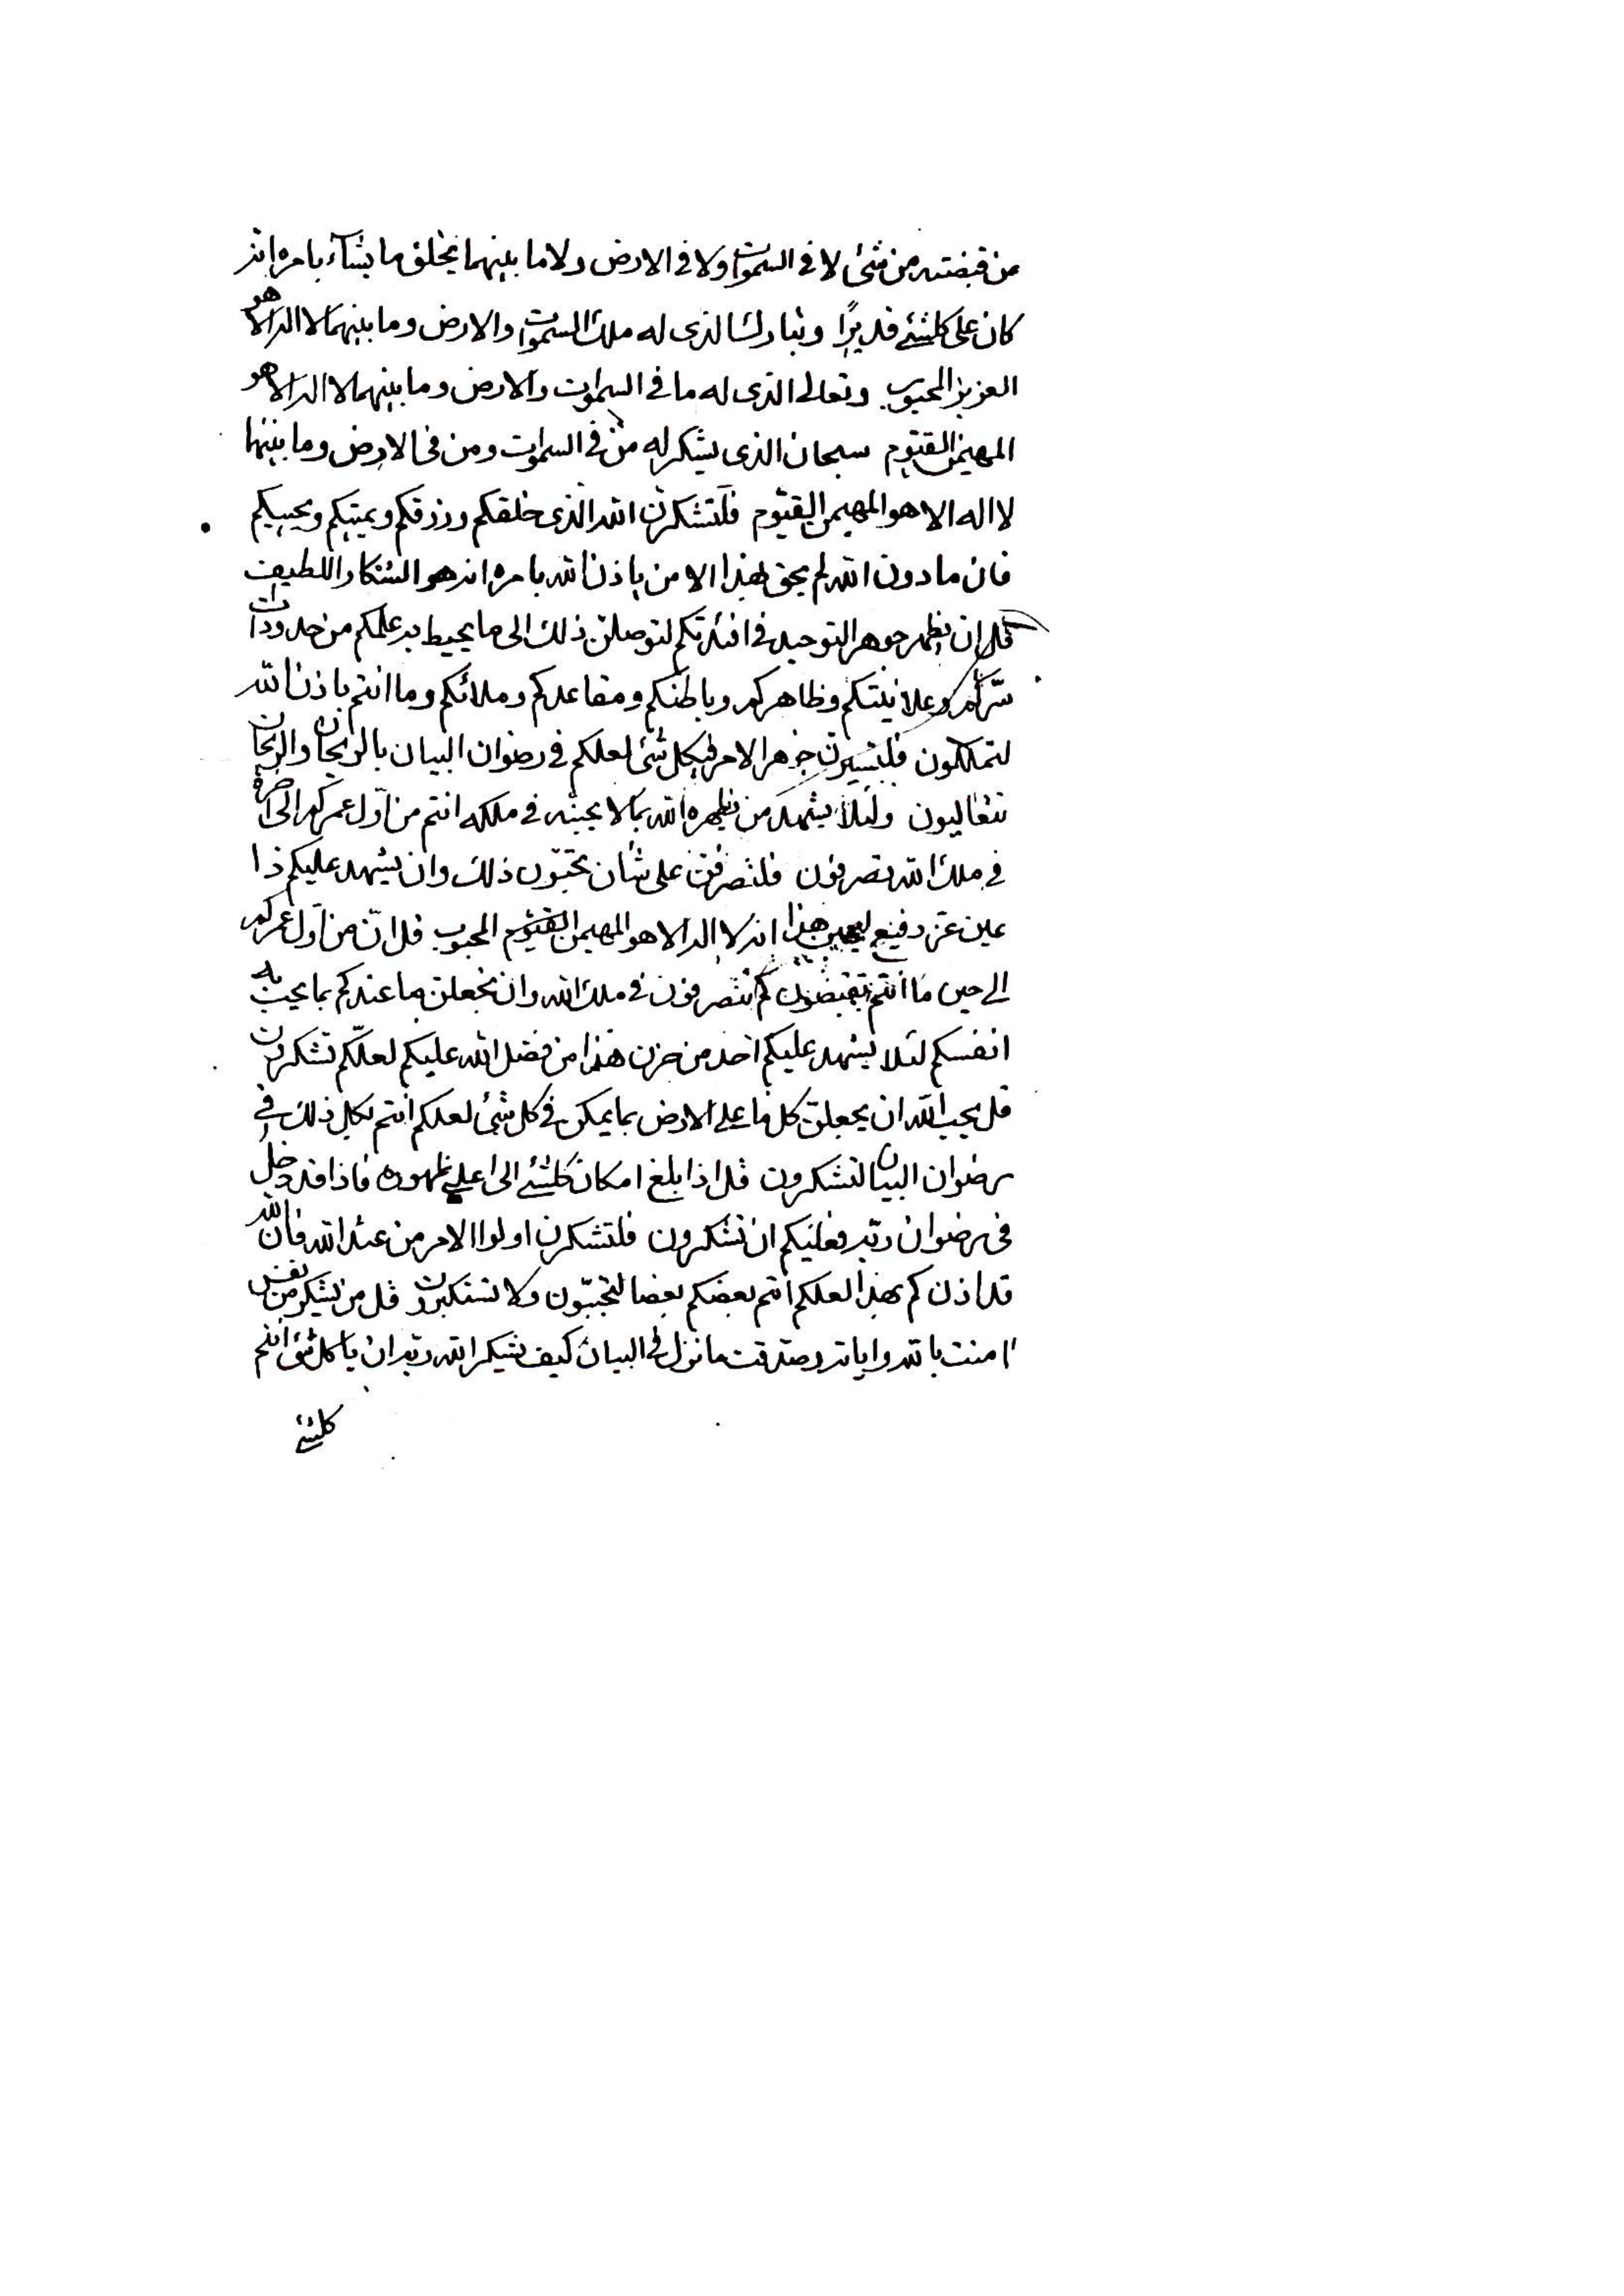 من قبضته من شئ لا فى السموات ولا فى الارض ولا ما بينهما يخلق ما يشآء بامره انه
كان على كلشئ قديرًا وتبارك الذى له ملك السموات والارض وما بينهما لا اله الا هو
العزيز المحبوب وتعالى الذى له ما فى السموات والارض وما بينهما لا اله الا هو
المهيمن القيوم سبحان الذى يشكر له من فى السموات ومن فى الارض وما بينهما
لا اله الا هو المهيمن القيّوم فلتشكرن الله الذى خلقكم ورزقكم ويميتكم ويحييكم
فان ما دون الله لم يحق لهذا الا من باذن الله بامره انه هو الشكار اللطيف
قل ان يظهر جوهر التوحيد فى افئدتكم لتوصلن ذلك الى ما يحيط به علمكم من حدودات
سرّكم وعلانيتكم وظاهركم وباطنكم ومقاعدكم وملائكم وما انتم باذن الله
لتملكون جوهر الامر فى كل شئ لعلكم فى رضوان البيان بالريحان والريحان
ولئلا يشهد من يظهره الله بما لا يحبنّه فى ملكه انتم من اوّل عمركم الى اخره
فى ملك الله تصرفون فلتصرفن على شأن تحبّون ذلك وان يشهد عليكم ذا
عين عز رفيع هذا انه لا اله الا هو المهيمن القيّوم المحبوب قل انّ من اوّل عمركم
الى حين ما انتم تقبضون كم تتصرفون فى ملك الله وان تجعلن ما عندكم بما يحب به
انفسكم لئلا يشهد عليكم احد من حزن هذا من فضل الله عليكم لعلّكم تشكرون
قل يحب الله ان يجعلنّ كل ما على الارض بما يمكن فى كل شئ لعلكم انتم بكل ذلك فى
رضوان البيان لتشكرون قل اذا بلغ امكان كلشئ الى اعلى ظهوره فاذا قد دخل
فى رضوان ربّه فعليكم ان تشكرون فلتشكرن اولوا الامر من عند الله فان الله
قد اذن كم بهذا لعلكم انتم بعضكم بعضا لتحببّون ولا تستكبرون قل من يشكر من نفس
امنت بالله واياته وصدقت ما نزل فى البيان كيف يشكر الله ربه ان يا كل شئ انتم
كلشئ